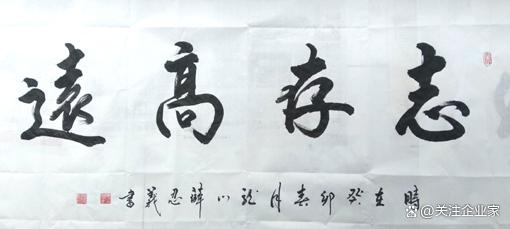 志存高遠
時在癸卯春月龍川薛忍義書
@关注企业家